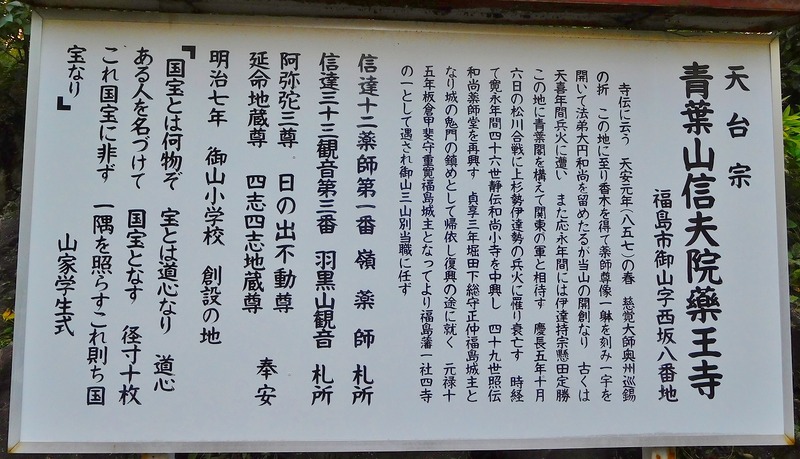 天台宗
青葉山信夫院藥王寺
福島市御山字西坂八番地
寺伝に云う　天安元年（八五七）の春　慈覚大師奥州巡錫
の折　この地に至り香木を得て薬師尊像一躰を刻み一宇を
開いて法弟大円和尚を留めたるが当山の開創なり　古くは
天喜年間兵火に遭い　また応永年間には伊達持宗懸田定勝
この地に青葉閣を構えて関東の軍と相待す　慶長五年十月
六日の松川合戦に上杉勢伊達勢の兵火に罹り衰亡す　時経
て寛永年間四十六世静伝和尚小寺を中興し　四十九世照伝
和尚薬師堂を再興す　貞享三年堀田下総守正仲福島城主と
なり城の鬼門の鎮めとして帰依し復興の途に就く　元禄十
五年板倉甲斐守重寛福島城主となってより福島藩一社四寺
の一として遇され御山三山別当職に任ず
信達十二薬師第一番　嶺薬師　札所
信達三十三観音第三番　羽黒山観音　札所
阿弥陀三尊　日の出不動尊
延命地蔵尊　四志四志地蔵尊　奉安
明治七年　御山小学校　創設の地
『国宝とは何物ぞ　宝とは道心なり　道心
ある人を名づけて　国宝となす　径寸十枚
これ国宝に非ず　一隅を照らすこれ則ち国
宝なり』
山家学生式